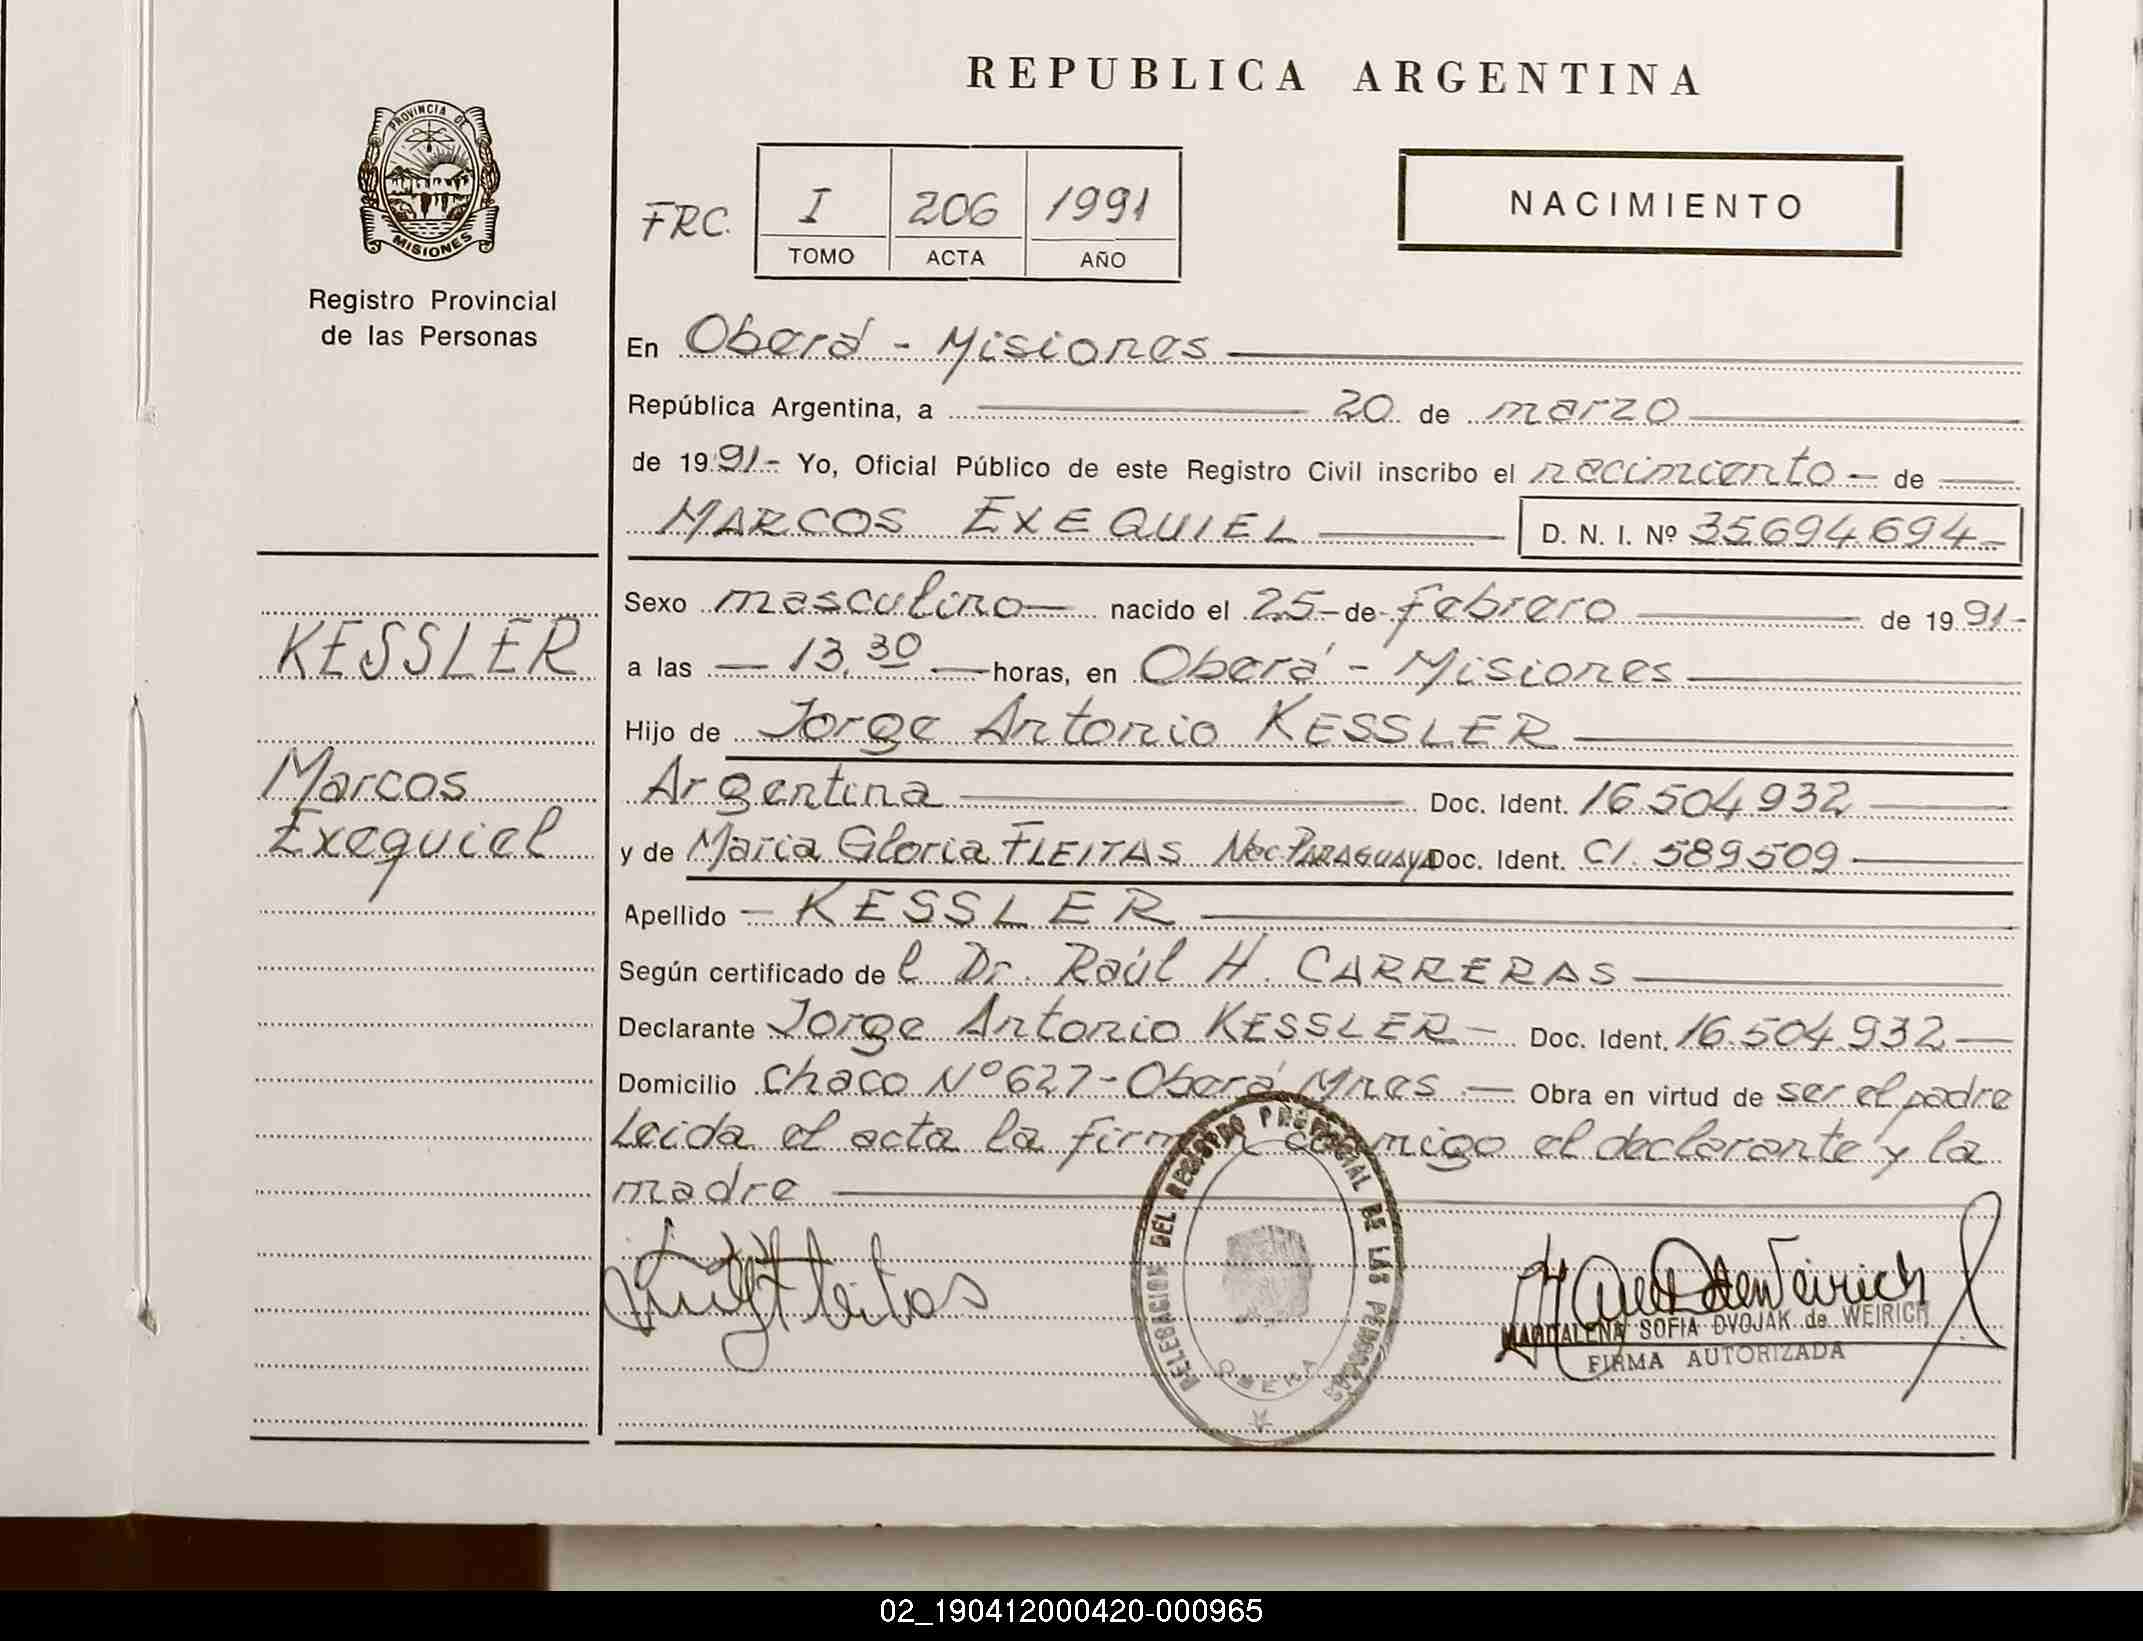 REPUBLICA ARGENTINA
PROVINCIA DE
MISIONES
Registro Provincial
de las Personas
FRC. I 206 1991
TOMO ACTA AÑO
NACIMIENTO
En Oberá - Misiones
República Argentina, a 20 de marzo
de 1991- Yo, Oficial Público de este Registro Civil inscribo el nacimiento - de
MARCOS EXEQUIEL D. N. I. Nº 35694694-
Sexo masculino nacido el 25-de-febrero de 1991-
a las 13,30 horas, en Oberá - Misiones
Hijo de Jorge Antonio KESSLER
Argentina Doc. Ident. 16.504.932
y de Maria Gloria FLEITAS Nac. PARAGUAYA Doc. Ident. CI. 589509
Apellido - KESSLER
Según certificado de l Dr. Raúl H. CARRERAS
Declarante Jorge Antonio KESSLER - Doc. Ident. 16.504.932
Domicilio Chaco Nº 627 - Oberá Mnes. - Obra en virtud de ser el padre
Leida el acta la firman conmigo el declarante y la
madre
KESSLER
Marcos
Exequiel
DELEGACION DEL REGISTRO PROVINCIAL DE LAS PERSONAS
OBERA
MAGDALENA SOFIA DVOJAK de WEIRICH
FIRMA AUTORIZADA
02_190412000420-000965